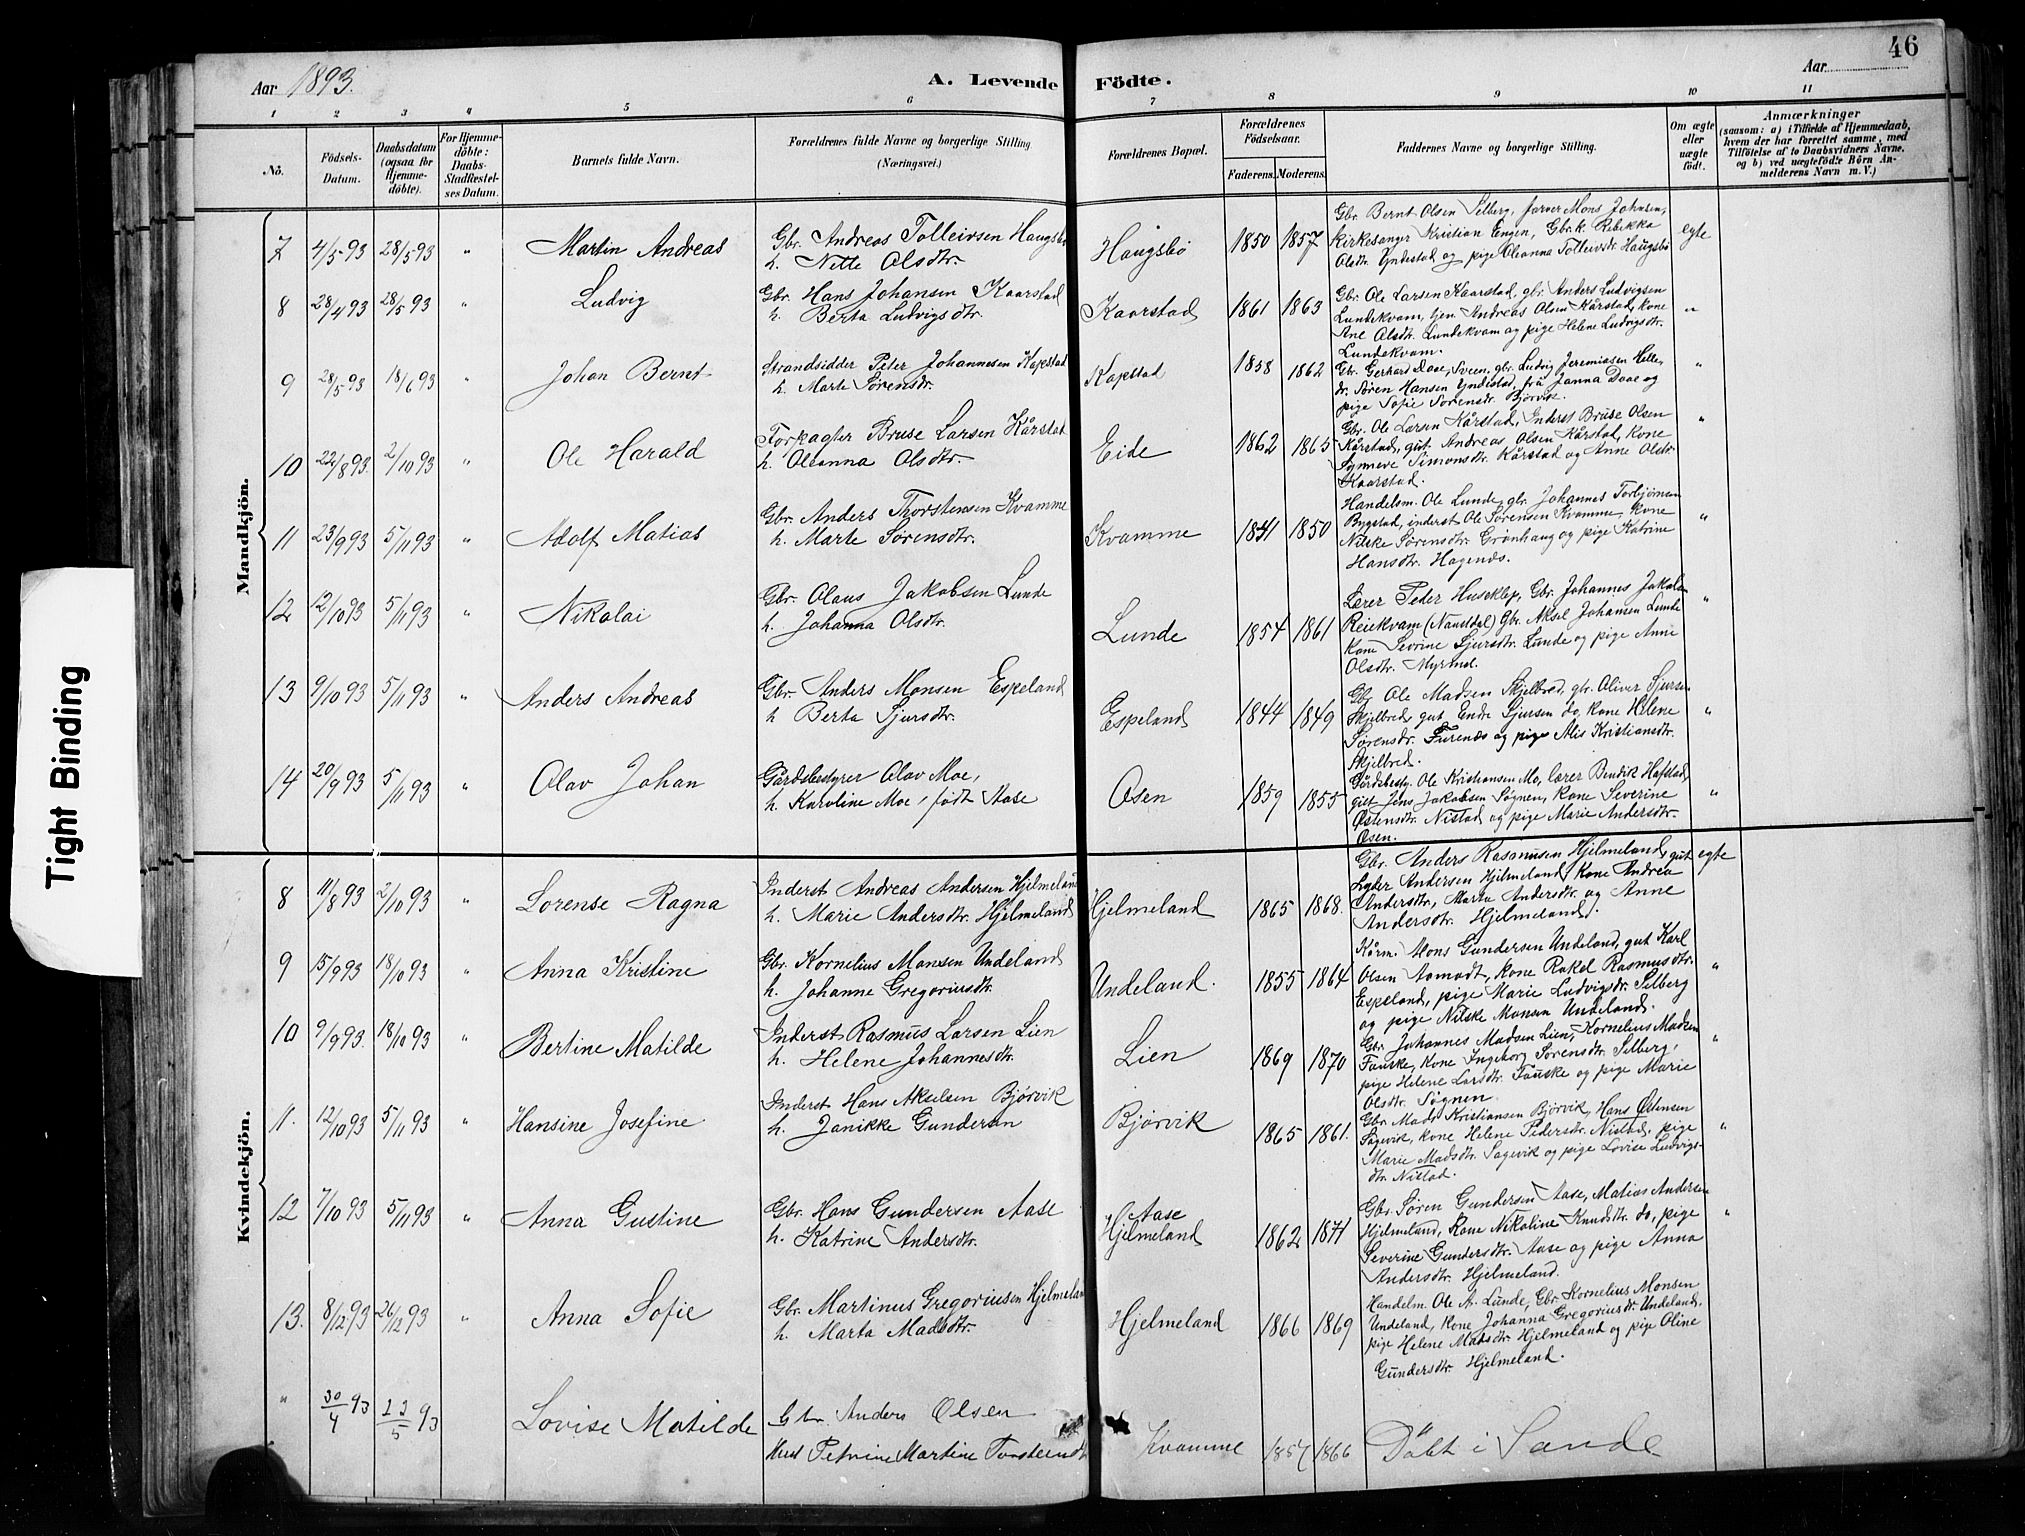 46
Aar 1893.
A. Levende Födte.
Aar
1 2 3 4 5 6 7 8 9 10 11
No.
Födsels-
Datum.
Daabsdatum
(ogsaa for
Hjemme-
döbte).
For Hjemme-
döbte:
Daabs-
Stadfæstel-
ses Datum.
Barnets fulde Navn.
Forældrenes fulde Navne og borgerlige Stilling
(Næringsvei).
Forældrenes Bopæl.
Forældrenes
Födselsaar.
Faderens. Moderens.
Faddernes Navne og borgerlige Stilling.
Om ægte
eller
uægte
födt.
Anmærkninger
(saasom: a) i Tilfælde af Hjemmedaab,
hvem der har forrettet samme, med
Tilföielse af to Daabsvidners Navne.
og b) ved uægtefödte Börn An-
melderens Navn m. V.)
Mandkjön.
7 4/5 93 28/5 93 " Martin Andreas
Gbr. Andreas Tolleivsen Haugsbø
h. Nille Olsdtr.
Haugsbø 1850 1857
Gbr. Bernt Olsen Selberg, Farver Mons Johnsen,
Kirkesanger Kristian Engen, Gbr.k. Rebikka
Olsdtr. Yndestad og pige Oleanna Tolleivsdr. Haugsbø
egte
8 28/4 93 28/5 93 " Ludvig
Gbr. Hans Johansen Kaarstad
h. Berta Ludvigsdtr.
Kaarstad 1861 1863
Gbr. Ole Larsen Kaarstad, gbr. Anders Ludvigsen
Lundekvam, tjen. Andreas Olsen Kårstad, kone
Ane Olsdtr. Lundekvam og pige Helene Ludvigsdtr.
Lundekvam.
"
9 28/5 93 18/6 93 " Johan Bernt
Strandsidder Peter Johannesen Kapstad
h. Marte Sørensdr.
Kapstad 1858 1862
Gbr. Gerhard Daae, Sveen, gbr. Ludvig Jeremiasen Helle,
dr. Søren Hansen Yndestad, frå Janna Daae og
pige Sofie Sørensdr. Bjørvik.
"
10 22/8 93. 2/10 93 " Ole Harald
Forpagter Bruse Larsen Kårstad
h. Oleanna Olsdtr.
Eide 1862 1865
Gbr. Ole Larsen Kårstad, Inderst Bruse Olsen
Kårstad, gut Andreas Olsen Kårstad, kone
Synneve Simonsdtr. Kårstad og Anne Olsdr.
Kaarstad.
"
11 23/9 93 5/11 93 " Adolf Matias
Gbr. Anders Thorstensen Kvamme
h. Marte Sørensdtr.
Kvamme 1841 1850
Handelsm. Ole Lunde, gbr. Johannes Torbjørnsen
Bygstad, inderst Ole Sørensen Kvamme, kone
Nilske Sørensdtr. Grønhaug og pige Katrine
Hansdtr. Hagenæs.
"
12 12/10 93 5/11 93 " Nikolai
Gbr. Olaus Jakobsen Lunde
h. Johanna Olsdtr.
Lunde 1854 1861
Lærer Peder Huseklep, Gbr. Johannes Jakobsen
Reiekvam (Naustdal) Gbr. Aksel Johansen Lunde
kone Sevrine Sjursdtr. Lunde og pige Anne
Olsdtr. Myrmel.
"
13 9/10 93 5/11 93 " Anders Andreas
Gbr. Anders Monsen Espeland
h Berta Sjursdtr.
Espeland 1844 1849
Gbr Ole Madsen Skjelbred, gbr. Oliver Sjursen
Skjelbred, gut Ende Sjursen do, kone Helene
Sørensdtr. Furenæs og pige Alis Kristiansdtr.
Skjelbred.
"
14 20/9 93 5/11 93 Olav Johan
Gårdsbestyrer Olav Moe,
h. Karoline Moe, født Aase
Osen 1859 1855
Gårdsbesty. Ole Kristiansen Mo, lærer Bendik Hafstad,
gut Jens Jakobsen Søgnen, kone Severine
Østensdtr. Nistad og pige Marie Andersdtr.
Osen.
"
Kvindekjön.
8 11/8 93 2/10 93 " Lorense Ragna
Inderst Andreas Andersen Hjelmeland
h. Marie Andersdtr. Hjelmeland
Hjelmeland 1865 1868.
Gbr. Anders Rasmusen Hjelmeland, gut
Lyder Andersen Hjelmeland, kone Andrea
Andersdtr, Marta Andersdtr. og Anne
Andersdtr. Hjelmeland.
egte
9 15/9 93 18/10 93 " Anna Kristine
Gbr. Kornelius Monsen Undeland
h. Johanne Gregoriusdtr.
Undeland. 1855 1864
Kårm. Mons Gundersen Undeland, gut Karl
Olsen Aamodt, kone Rakel Rasmusdtr.
Espeland, pige Marie Ludvigsdtr. Selberg
og pige Nilske Monsen Undeland.
"
10 9/9 93. 18/10 93 " Bertine Matilde
Inderst Rasmus Larsen Lien
h. Helene Johannesdtr.
Lien 1869 1870
Gbr. Johannes Madsen Lien, Kornelius Madsen
Fauske, kone Ingeborg Sørensdtr. Selberg,
pige Helene Larsdtr. Fauske og pige Marie
Olsdtr. Søgnen.
"
11. 12/10 93 5/11 93 " Hansine Josefine
Inderst Hans Akselsen Bjørvik
h. Janikke Gundersen
Bjørvik 1865 1861.
Gbr. Mads Kristiansen Bjørvik, Hans Østensen
Sagevik, kone Helene Pedersdtr. Nistad, pige
Marie Madsdtr. Sagevik og pige Lovise Ludvigs-
dtr. Nistad.
"
12 7/10 93 5/11 93 " Anna Gustine
Gbr. Hans Gundersen Aase
h. Katrine Andersdtr.
Aase
Hjelmeland 1862 1871
Gbr. Søren Gundersen Aase, Matias Andersen
Hjelmeland, Kone Nikoline Knudsdtr. do, pige
Severine Gundersdtr. Aase og pige Anna
Andersdtr. Hjelmeland.
"
13. 8/12 93 26/12 93 " Anna Sofie
Gbr. Martinus Gregoriusen Hjelmeland
h. Marta Madsdtr.
Hjelmeland 1866 1869
Handelm. Ole A. Lunde, Gbr. Kornelius Monsen
Undeland, kone Johanna Gregoriusdr. Undeland,
pige Helene Madsdtr. Hjelmeland og pige Oline
Gundersdtr. Hjelmeland.
" 30/4 93 /5 93 Lovise Matilde
Gbr Anders Olsen
Hust Petrine Martine Torsteinsdt
Kvamme 1857 1866
Døbt i Sande
Tight Binding